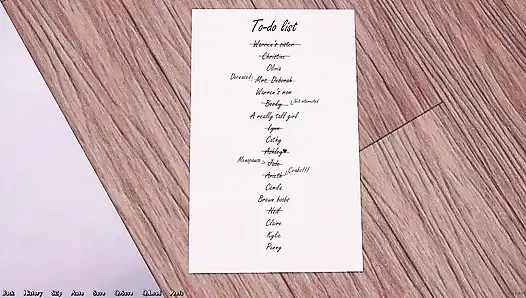 To-do list
Warren's sister
Christine
Olivia
Deceased Mrs. Deborah
Warren's mom
Becky Not interested
A really tall girl
Lynn
Cathy
Ashley♥
Menopause
Arieth Crabs!!!
Camila
Brown boobs
Claire
Kylie
Penny
Back History Skip Auto Save Q.Save Q.Load Prefs